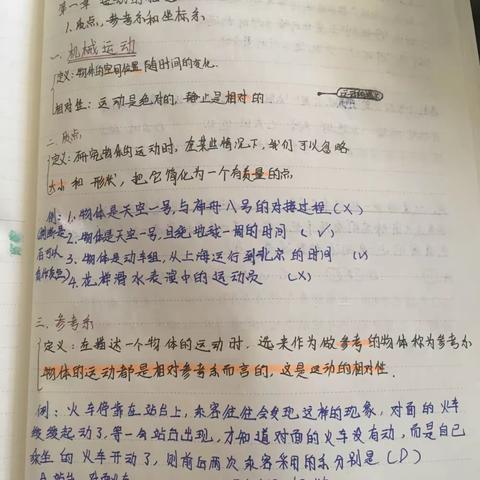 第一章
1.质点,参考系和坐标系
一.机械运动
定义:物体的空间位置随时间的变化.
相对性:运动是绝对的,静止是相对的
二.质点
定义:研究物体的运动时,在某些情况下,我们可以忽略
大小和形状,把它简化为一个有质量的点
例:1.物体是天空一号,与神舟八号的对接过程(X)
2.物体是天空一号,且绕地球一周的时间 (√)
3.物体是动车组,从上海运行到北京的时间 (√)
4.花样滑水表演中的运动员 (X)
三.参考系
定义:在描述一个物体的运动时,选来作为做参考的物体称为参考系
物体的运动都是相对参考系而言的,这是运动的相对性.
例:火车停靠在站台上,乘客往往会发现这样的现象,对面的火车
缓缓起动了,等一会站台出现,才知道对面的火车没有动,而是自己
乘坐的火车开动了,则前后两次乘客采用的系分别是(D)